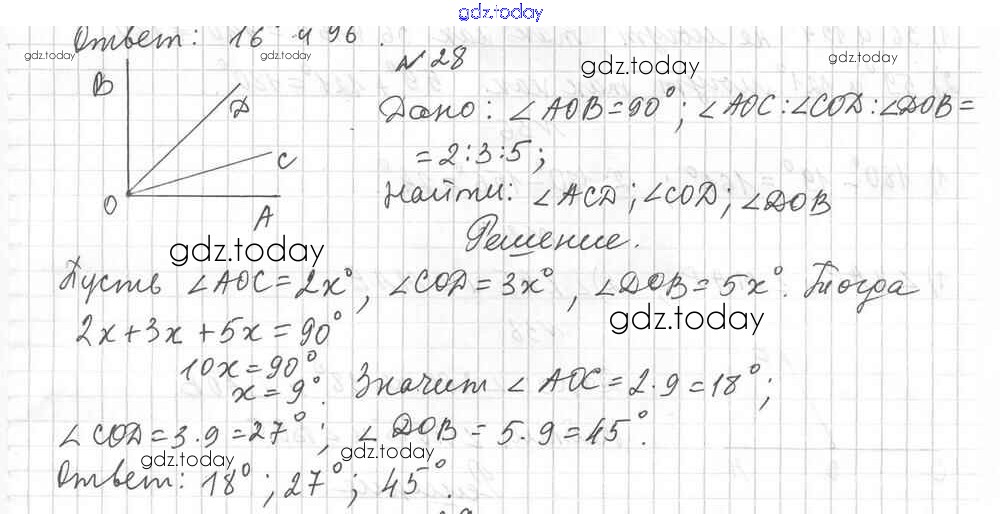 gdz.today
Ответ: 16 и 96.
gdz.today
gdz.today
№28
gdz.today
B
D
C
O
A
Дано: ∠AOB=90°; ∠AOC:∠COD:∠DOB=
=2:3:5;
Найти: ∠ACD; ∠COD; ∠DOB
Решение.
gdz.today
Пусть ∠AOC=2x°, ∠COD=3x°, ∠DOB=5x°. Тогда
gdz.today
2x+3x+5x=90°
10x=90°
x=9°. Значит ∠AOC=2·9=18°;
∠COD=3·9=27°; ∠DOB=5·9=45°.
gdz.today
gdz.today
Ответ: 18°; 27°; 45°.